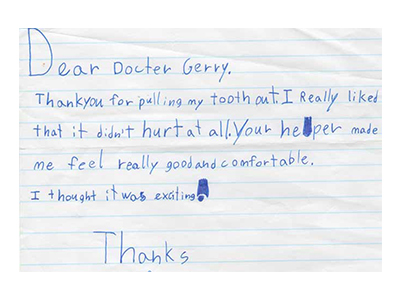 Dear Docter Gerry.
Thankyou for pulling my tooth out. I Really liked
that it didn't hurt at all. Your helper made
me feel really good and comfortable.
I thought it was exciting.
Thanks